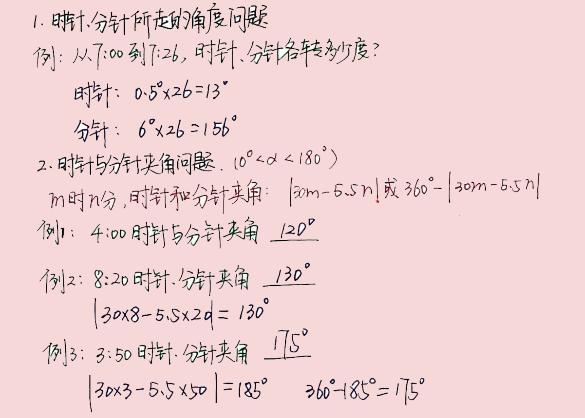 1. 时针、分针所走的角度问题
例: 从7:00到7:26, 时针、分针各转多少度?
时针: 0.5°×26=13°
分针: 6°×26=156°
2. 时针与分针夹角问题. (0°<α<180°)
m时n分, 时针和分针夹角: |30m-5.5n|或360°-|30m-5.5n|
例1: 4:00时针与分针夹角 120°
例2: 8:20时针、分针夹角 130°
|30×8-5.5×20|=130°
例3: 3:50时针、分针夹角 175°
|30×3-5.5×50|=185° 360°-185°=175°